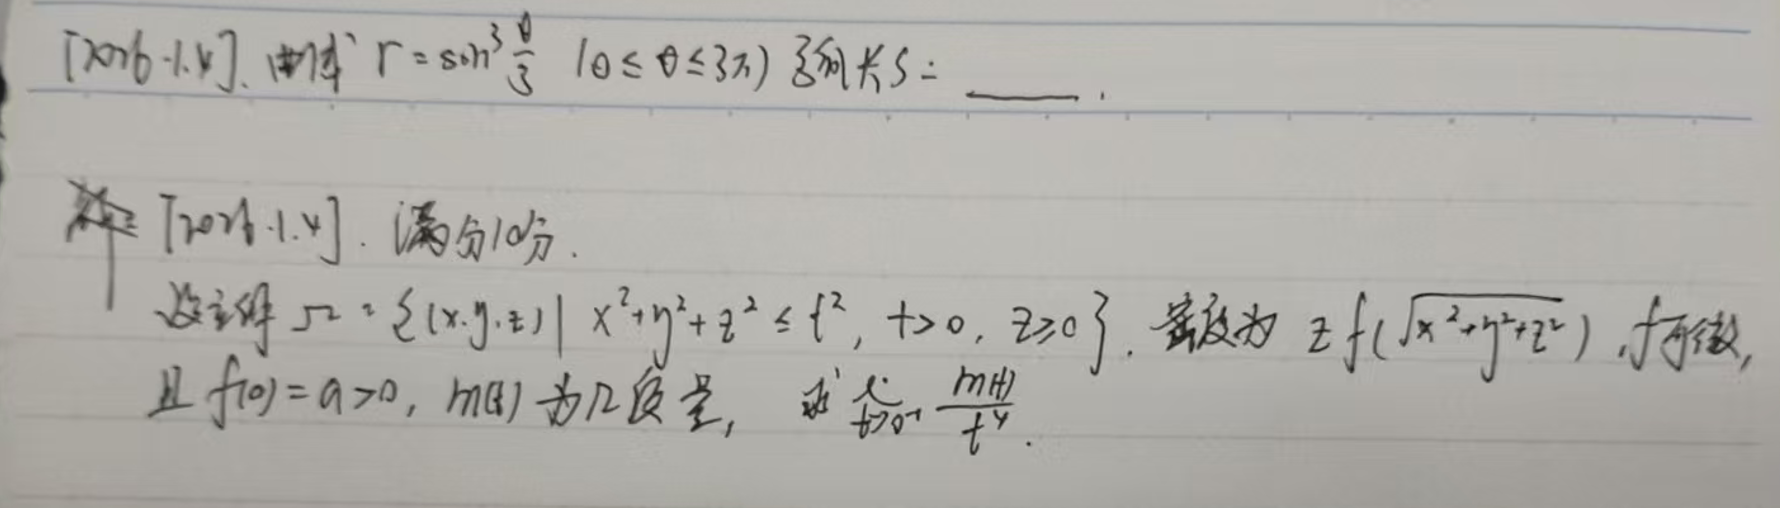 [2026.1.4]. 曲线 r = sin³ θ/3 (0 ≤ θ ≤ 3π) 弧长 S = ____.
[2026.1.4]. 满分10分.
设立体 Ω = {(x.y.z) | x²+y²+z² ≤ t², t>0, z≥0}. 密度为 z f(√x²+y²+z²), f可微,
且 f(0) = a>0, m(t) 为Ω质量, 求 lim t→0⁺ m(t)/t⁴.